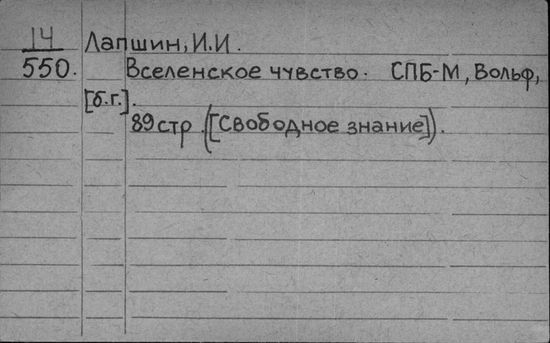 14 Лапшин, И.И.
550. Вселенское чувство. СПБ-М, Вольф,
[б.г.].
89 стр. ([Свободное знание]).